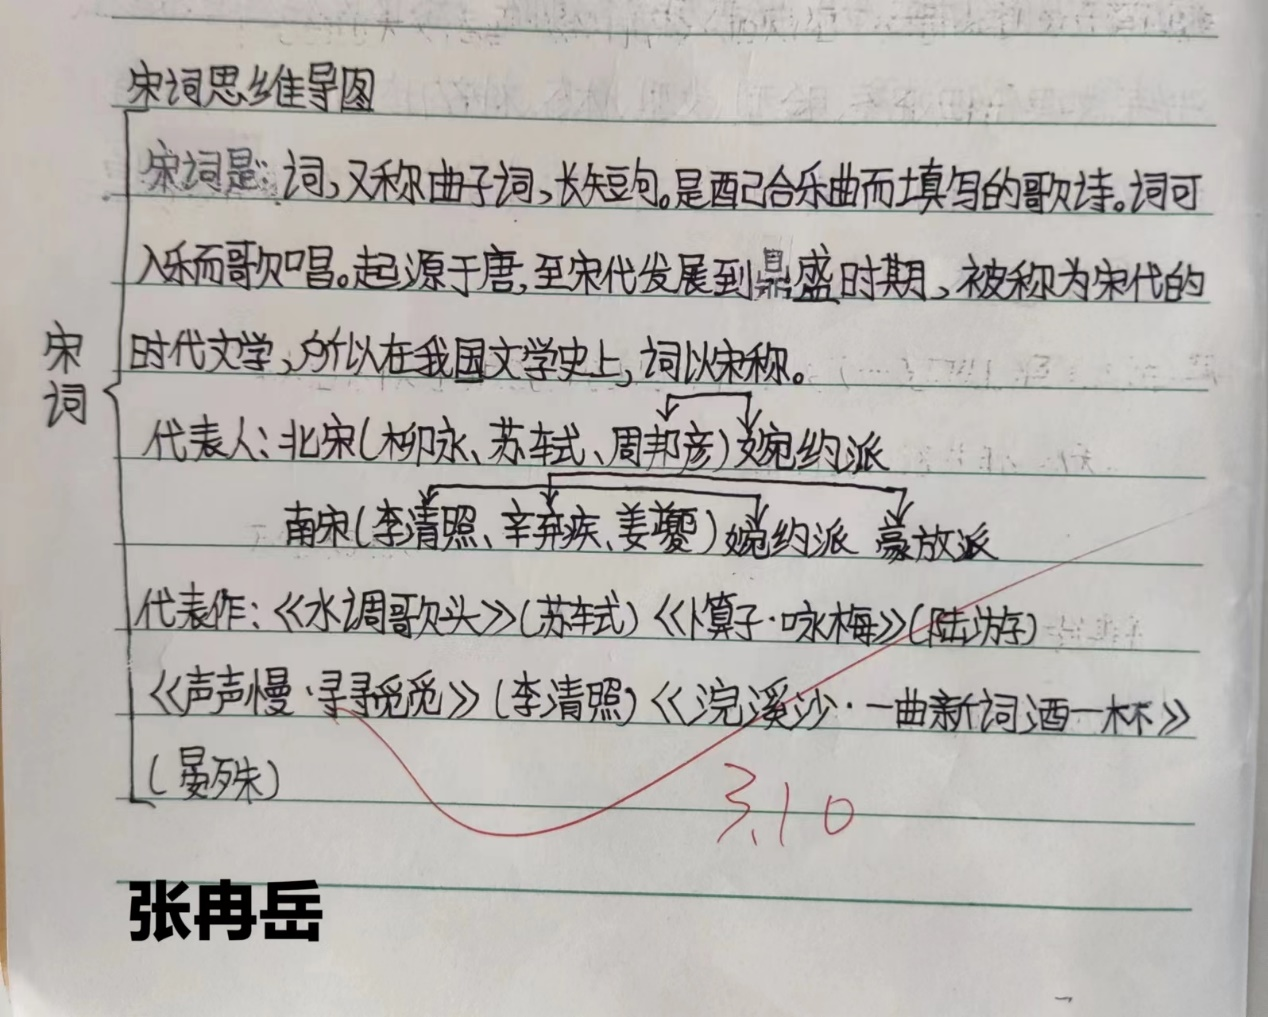 宋词思维导图
宋词是:词,又称曲子词、长短句。是配合乐曲而填写的歌诗。词可
入乐而歌唱。起源于唐,至宋代发展到鼎盛时期、被称为宋代的
时代文学、所以在我国文学史上,词以宋称。
宋词
代表人:北宋(柳永、苏轼、周邦彦)婉约派
南宋(李清照、辛弃疾、姜夔)婉约派 豪放派
代表作:《水调歌头》(苏轼)《卜算子·咏梅》(陆游)
《声声慢·寻寻觅觅》(李清照)《浣溪沙·一曲新词酒一杯》
(晏殊)
3.10
张冉岳